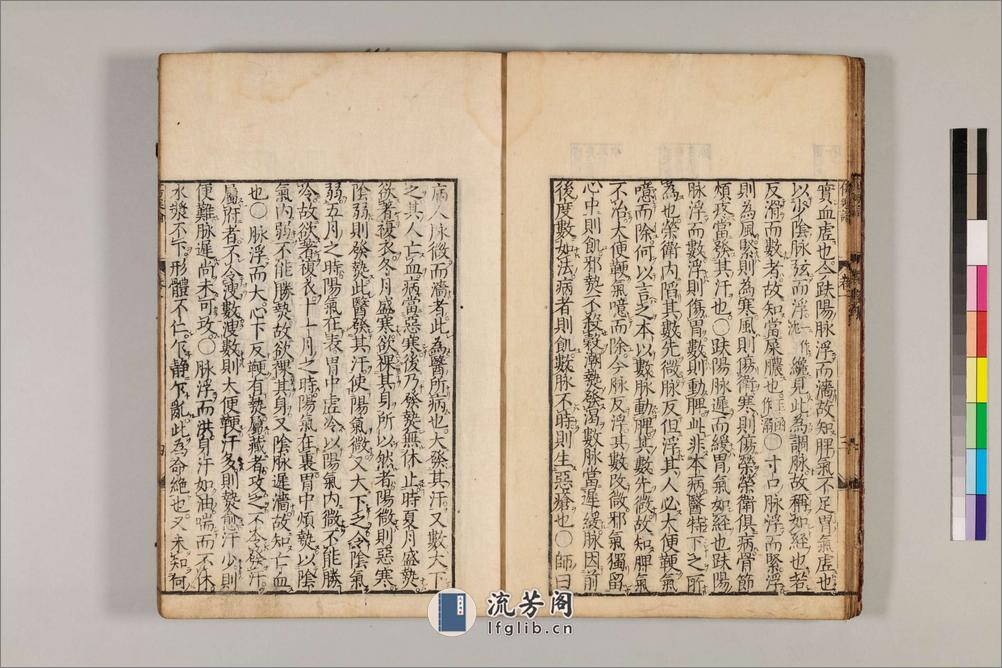 實血虛也今趺陽脉浮而濇故知脾氣不足胃氣虛也
以少陰脉弦而浮一作沉纔見此為調脉故稱如經也若
反滑而數者故知當屎膿也〇寸口脉浮而緊浮
則為風緊則為寒風則傷衛寒則傷榮榮衛俱病骨節
煩疼當發其汗也〇趺陽脉遲而緩胃氣如經也趺陽
脉浮而數浮則傷胃數則動脾此非本病醫特下之所
為也榮衛內陷其數先微脉反但浮其人必大便鞕氣
噫而除何以言之本以數脉動脾其數先微故知脾氣
不治大便鞕氣噫而除今脉反浮其數改微邪氣獨留
心中則飢邪熱不殺穀潮熱發渴數脉當遲緩脉因前
後度數如法病者則飢數脉不時則生惡瘡也〇師曰
病人脉微而濇者此為醫所病也大發其汗又數大下
之其人亡血病當惡寒後乃發熱無休止時夏月盛熱
欲著複衣冬月盛寒欲裸其身所以然者陽微則惡寒
陰弱則發熱此醫發其汗使陽氣微又大下之令陰氣
弱五月之時陽氣在表胃中虛冷以陽氣內微不能勝
冷故欲著複衣十一月之時陽氣在裏胃中煩熱以陰
氣內弱不能勝熱故欲裸其身又陰脉遲濇故知亡血
也〇脉浮而大心下反鞕有熱屬藏者攻之不令發汗
屬府者不令溲數溲數則大便鞕汗多則熱愈汗少則
便難脉遲尚未可攻〇脉浮而洪身汗如油喘而不休
水漿不下形體不仁乍靜乍亂此為命絕也又未知何
流芳阁
lfglib.cn